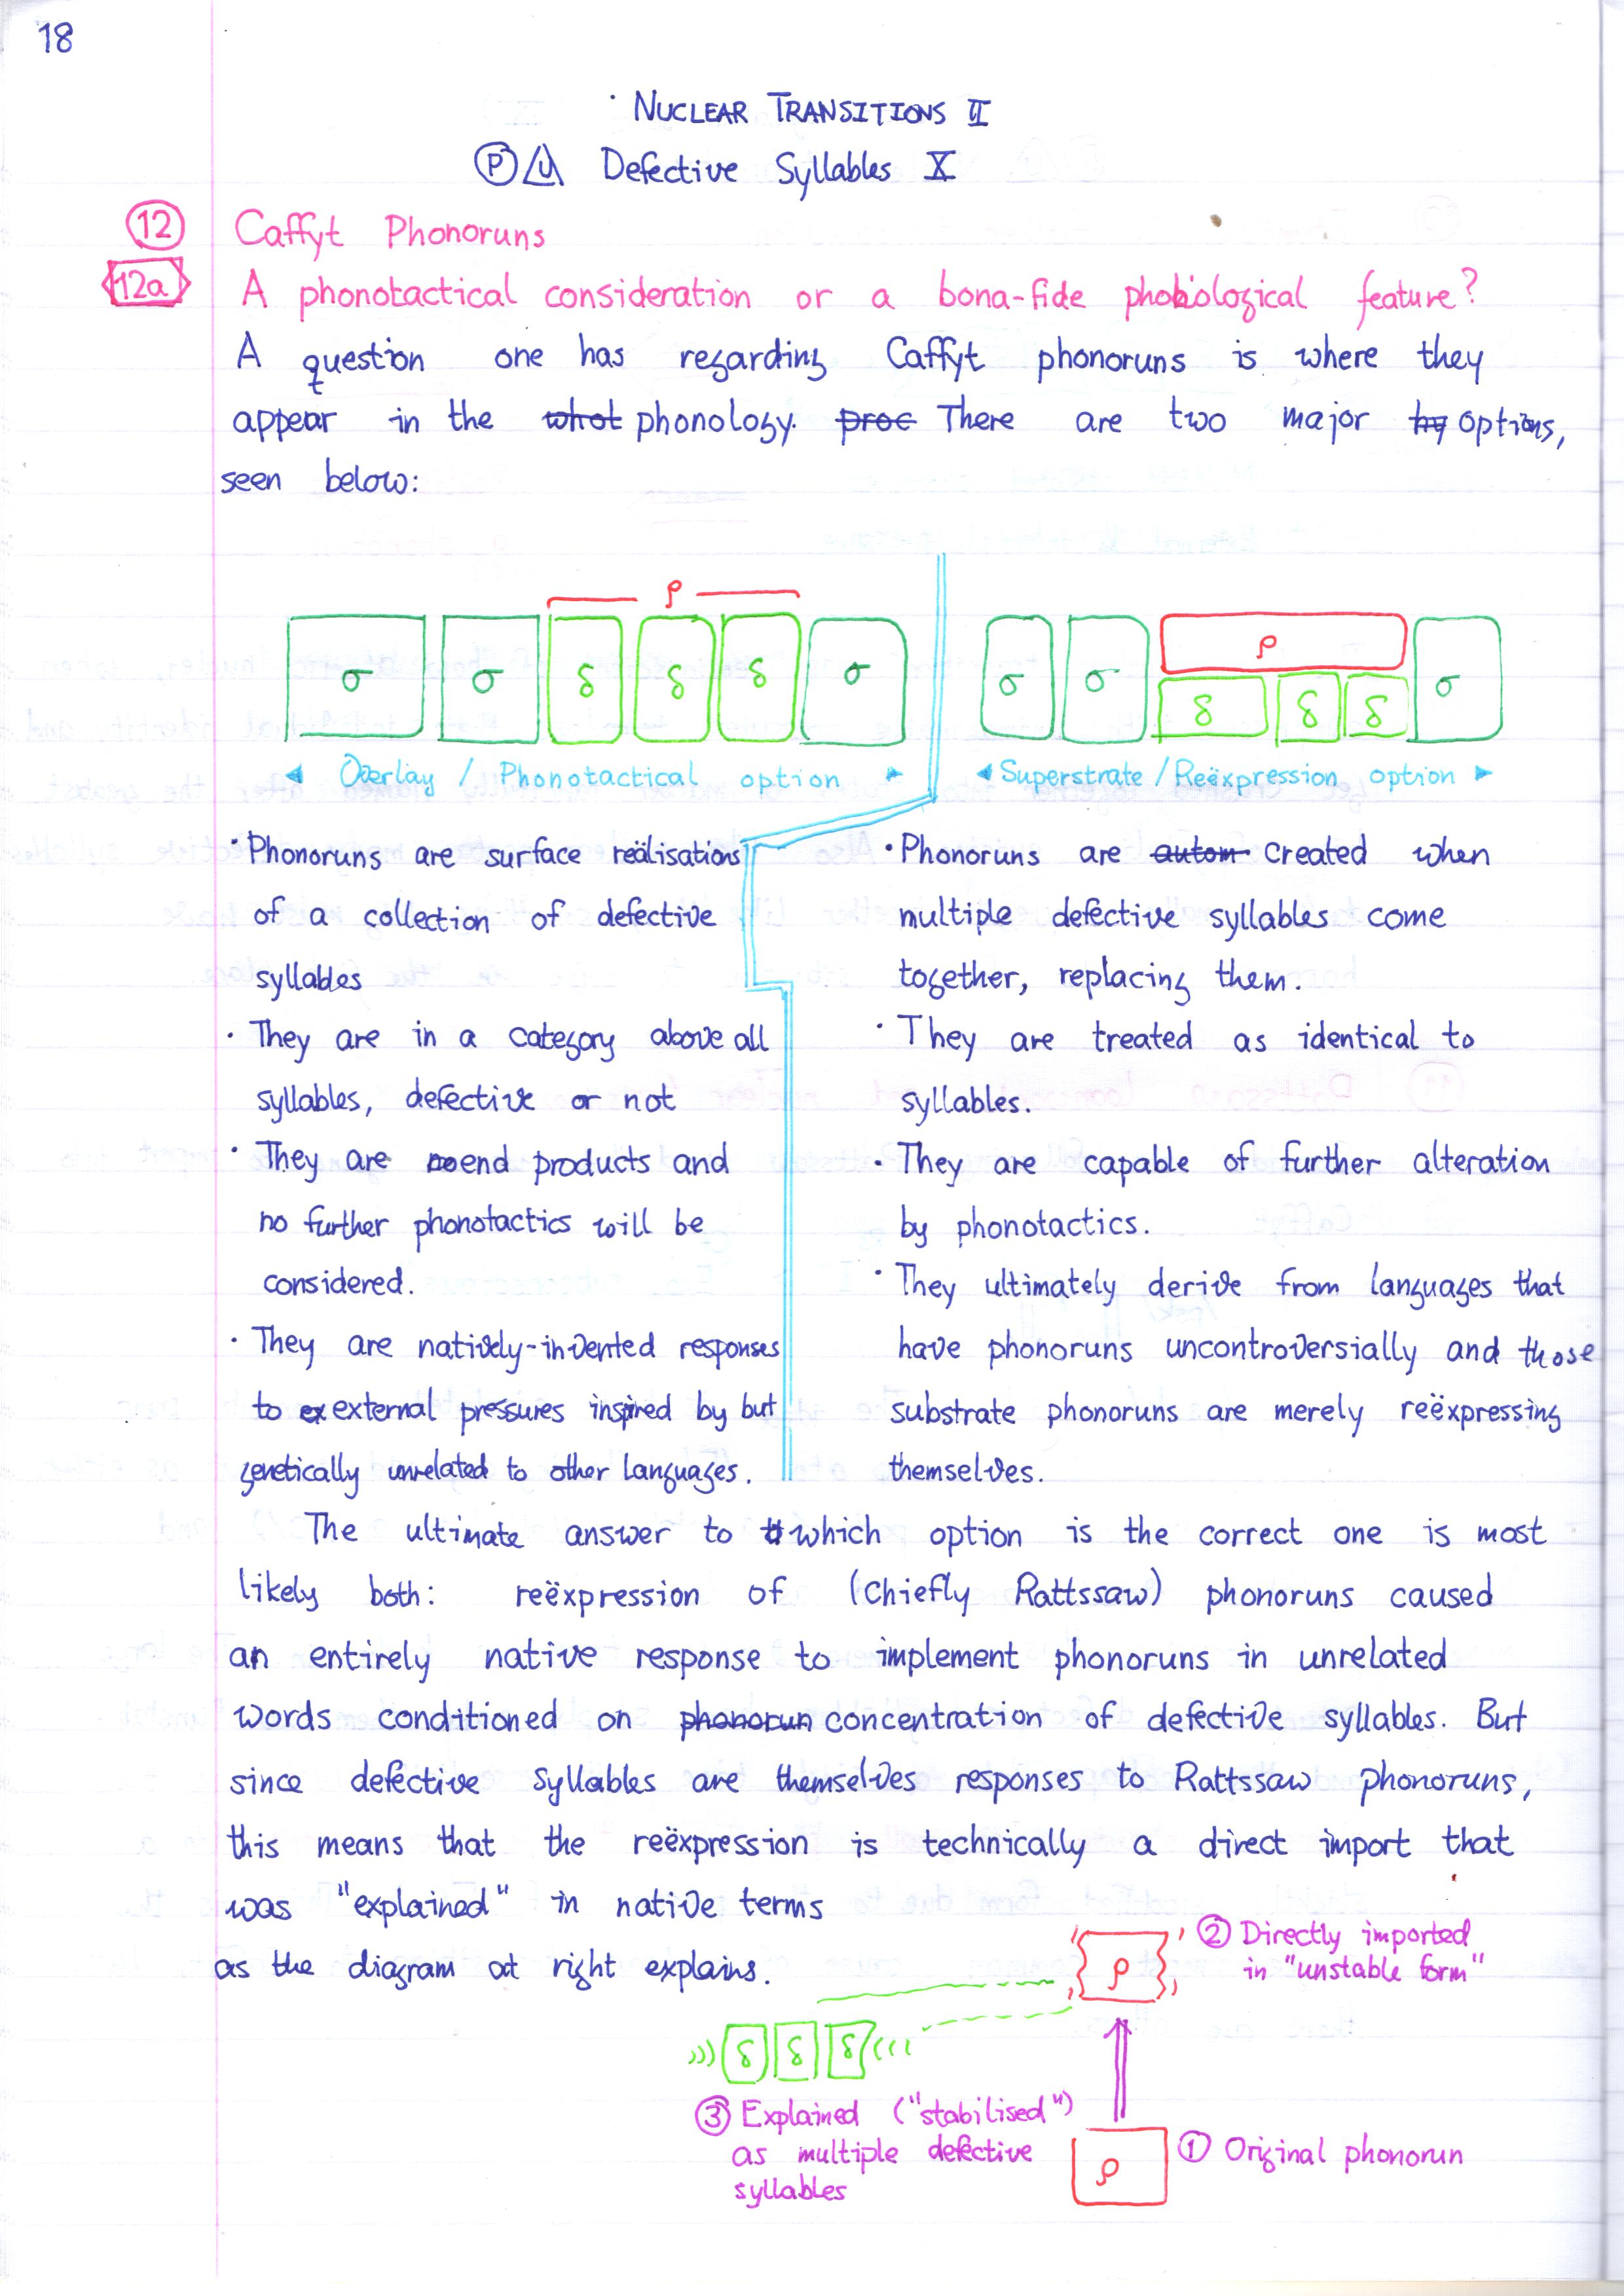 18
NUCLEAR TRANSITIONS II
P U Defective Syllables X
12 Caffyt Phonoruns
12a A phonotactical consideration or a bona-fide phonological feature?
A question one has regarding Caffyt phonoruns is where they
appear in the what phonology. proc There are two major hy options,
seen below:
ρ
σ σ δ δ δ σ
◄ Overlay / Phonotactical option ►
ρ
σ σ δ δ δ σ
◄ Superstrate / Reëxpression option ►
· Phonoruns are surface reälisations
of a collection of defective
syllables
· They are in a category above all
syllables, defective or not
· They are end products and
no further phonotactics will be
considered.
· They are natively-invented responses
to ex external pressures inspired by but
genetically unrelated to other languages.
· Phonoruns are autom created when
multiple defective syllables come
together, replacing them.
· They are treated as identical to
syllables.
· They are capable of further alteration
by phonotactics.
· They ultimately derive from languages that
have phonoruns uncontroversially and those
substrate phonoruns are merely reëxpressing
themselves.
The ultimate answer to which option is the correct one is most
likely both: reëxpression of (chiefly Rattssaw) phonoruns caused
an entirely native response to implement phonoruns in unrelated
words conditioned on phonorun concentration of defective syllables. But
since defective syllables are themselves responses to Rattssaw phonoruns,
this means that the reëxpression is technically a direct import that
was "explained" in native terms
as the diagram at right explains.
ρ
② Directly imported
in "unstable form"
δ δ δ
③ Explained ("stabilised")
as multiple defective
syllables
ρ
① Original phonorun